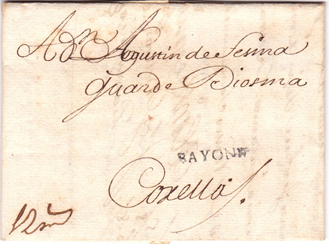 A Dn Agustin de Sesma
guarde Dios ma
BAYONNE
Corella
12 m